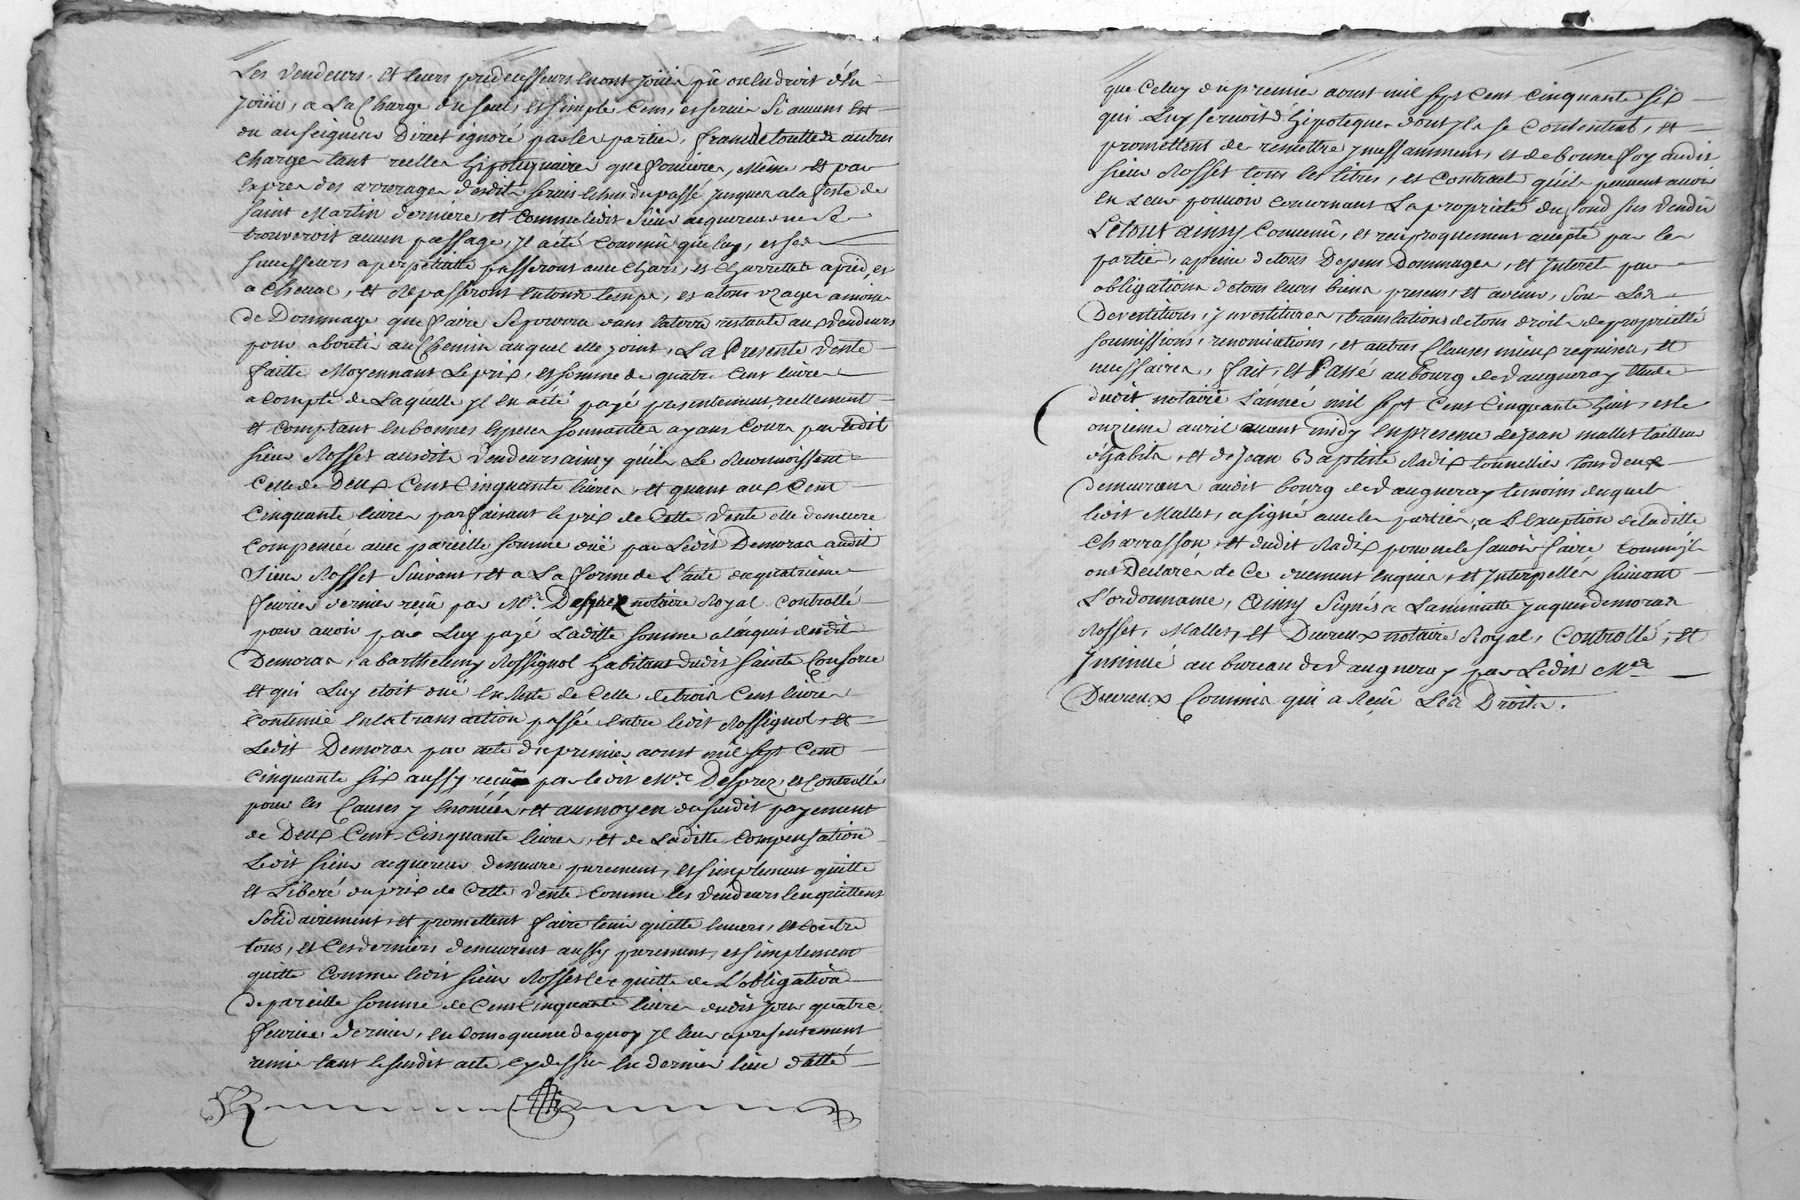 Les Vendeurs, et leurs predecesseurs en ont joüis pû ou eu droit d'en
joüir, a La Charge du seul, et simple Cens, et servis si aucuns est
du au seigneur Direct ignoré par les parties, franche de toutte autres
Charges tant reelles hipotequaires que foncieres, même, et par
exprès des arrerages desdits servis echus du passé jusques a la feste de
saint Martin derniere, et comme ledit sieur acquereur ne se
trouveroit aucun passage, jl a été Convenû que luy, et ses
successeurs a perpetuitte passeront avec chars, et charrettes a pied, et
a cheval, et repasseront en tous temps, et a tous usages a moins
de Dommage que faire se pourra dans la terre restante aux Vendeurs
pour aboutir au Chemin auquel elle joint, La Presente Vente
faitte Moyennant Le prix, et somme de quatre Cent livres
a compte de Laquelle jl en a été payé presentement, reellement
et comptant en bonnes especes sonnantes ayans Cours par Ledit
sieur Rosset ausdits Vendeurs ainsy qu'ils Le Reconnoissent
Celle de Deux Cent Cinquante livres, et quant aux Cent
Cinquante livres parfaisant le prix de Cette Vente elle demeure
Compensée avec pareille somme düe par Ledit Demoras audit
Sieur Rosset Suivant, et a La forme de L'acte du quatrieme
fevrier dernier reçû par Me. Desprez notaire Royal Controllé
pour avoir par Luy payé Laditte somme a l'acquis dudit
Demoras, a barthelemy Rossignol habitant dudit Sainte Consorce
et qui Luy etoit düe en reste de Celle de trois Cent livres
Contenüe en la transaction passée entre ledit Rossignol, et
Ledit Demoras par acte du premier aoust mil sept Cent
Cinquante six aussy reçû par ledit Me. Desprez, et Controllé
pour les Causes y enoncées, et au moyen du susdit payement
de Deux Cent Cinquante livres, et de Laditte Compensation
Ledit sieur acquereur demeure purement, et simplement quitte
et Liberé du prix de Cette Vente Comme les Vendeurs l'en quittent
Solidairement, et promettent faire tenir quitte envers, et contre
tous, et Ces derniers demeurent aussy purement, et simplement
quitte Comme ledit sieur Rosset les quitte de L'obligation
de pareille somme de Cent Cinquante livres dudit jour quatre
fevrier dernier, en Consequence de quoy jl leur a presentement
remis tant le susdit acte cy dessus en dernier lieu datté
que Celuy du premier aoust mil sept Cent Cinquante six
qui Luy servoit d'hipoteque dont jls se Contentent, et
promettent de remettre jncessamment, et de bonne foy audit
sieur Rosset tous les titres, et Contract qu'ils peuvent avoir
en Leur pouvoir Concernant La proprieté du fond sus Vendu
Le tout ainsy Convenû, et reciproquement accepté par les
parties, a peine de tous Depens Dommages, et Interet par
obligation de tous leurs biens presens, et avenir, sous Les
Devestitures, jnvestitures, translations de tous droit de proprietté
soumissions, renonciations, et autres Clauses mieux requises, et
necessaires, fait, et Passé au bourg de Vaugneray etude
dudit notaire L'année mil sept Cent Cinquante huit, et le
onzieme avril avant midy en presence de jean mallet tailleur
d'habits, et de Jean Baptiste Radix tonnellier tous deux
demeurans audit bourg de Vaugneray temoins duquel
ledit Mallet, a signé avec les parties, a L'exception de laditte
Charrasson, et dudit Radix pour ne le savoir faire, comme jls
ont Declarés de Ce duement enquis, et Interpellés suivant
L'ordonnance, Ainsy Signés a La minutte jaques demoras
Rosset, Mallet, et Duvreux notaire Royal, Controllé, et
Jnsinüé au bureau de Vaugneray par Ledit Me.
Duvreux Commis qui a Reçû Les Droits.